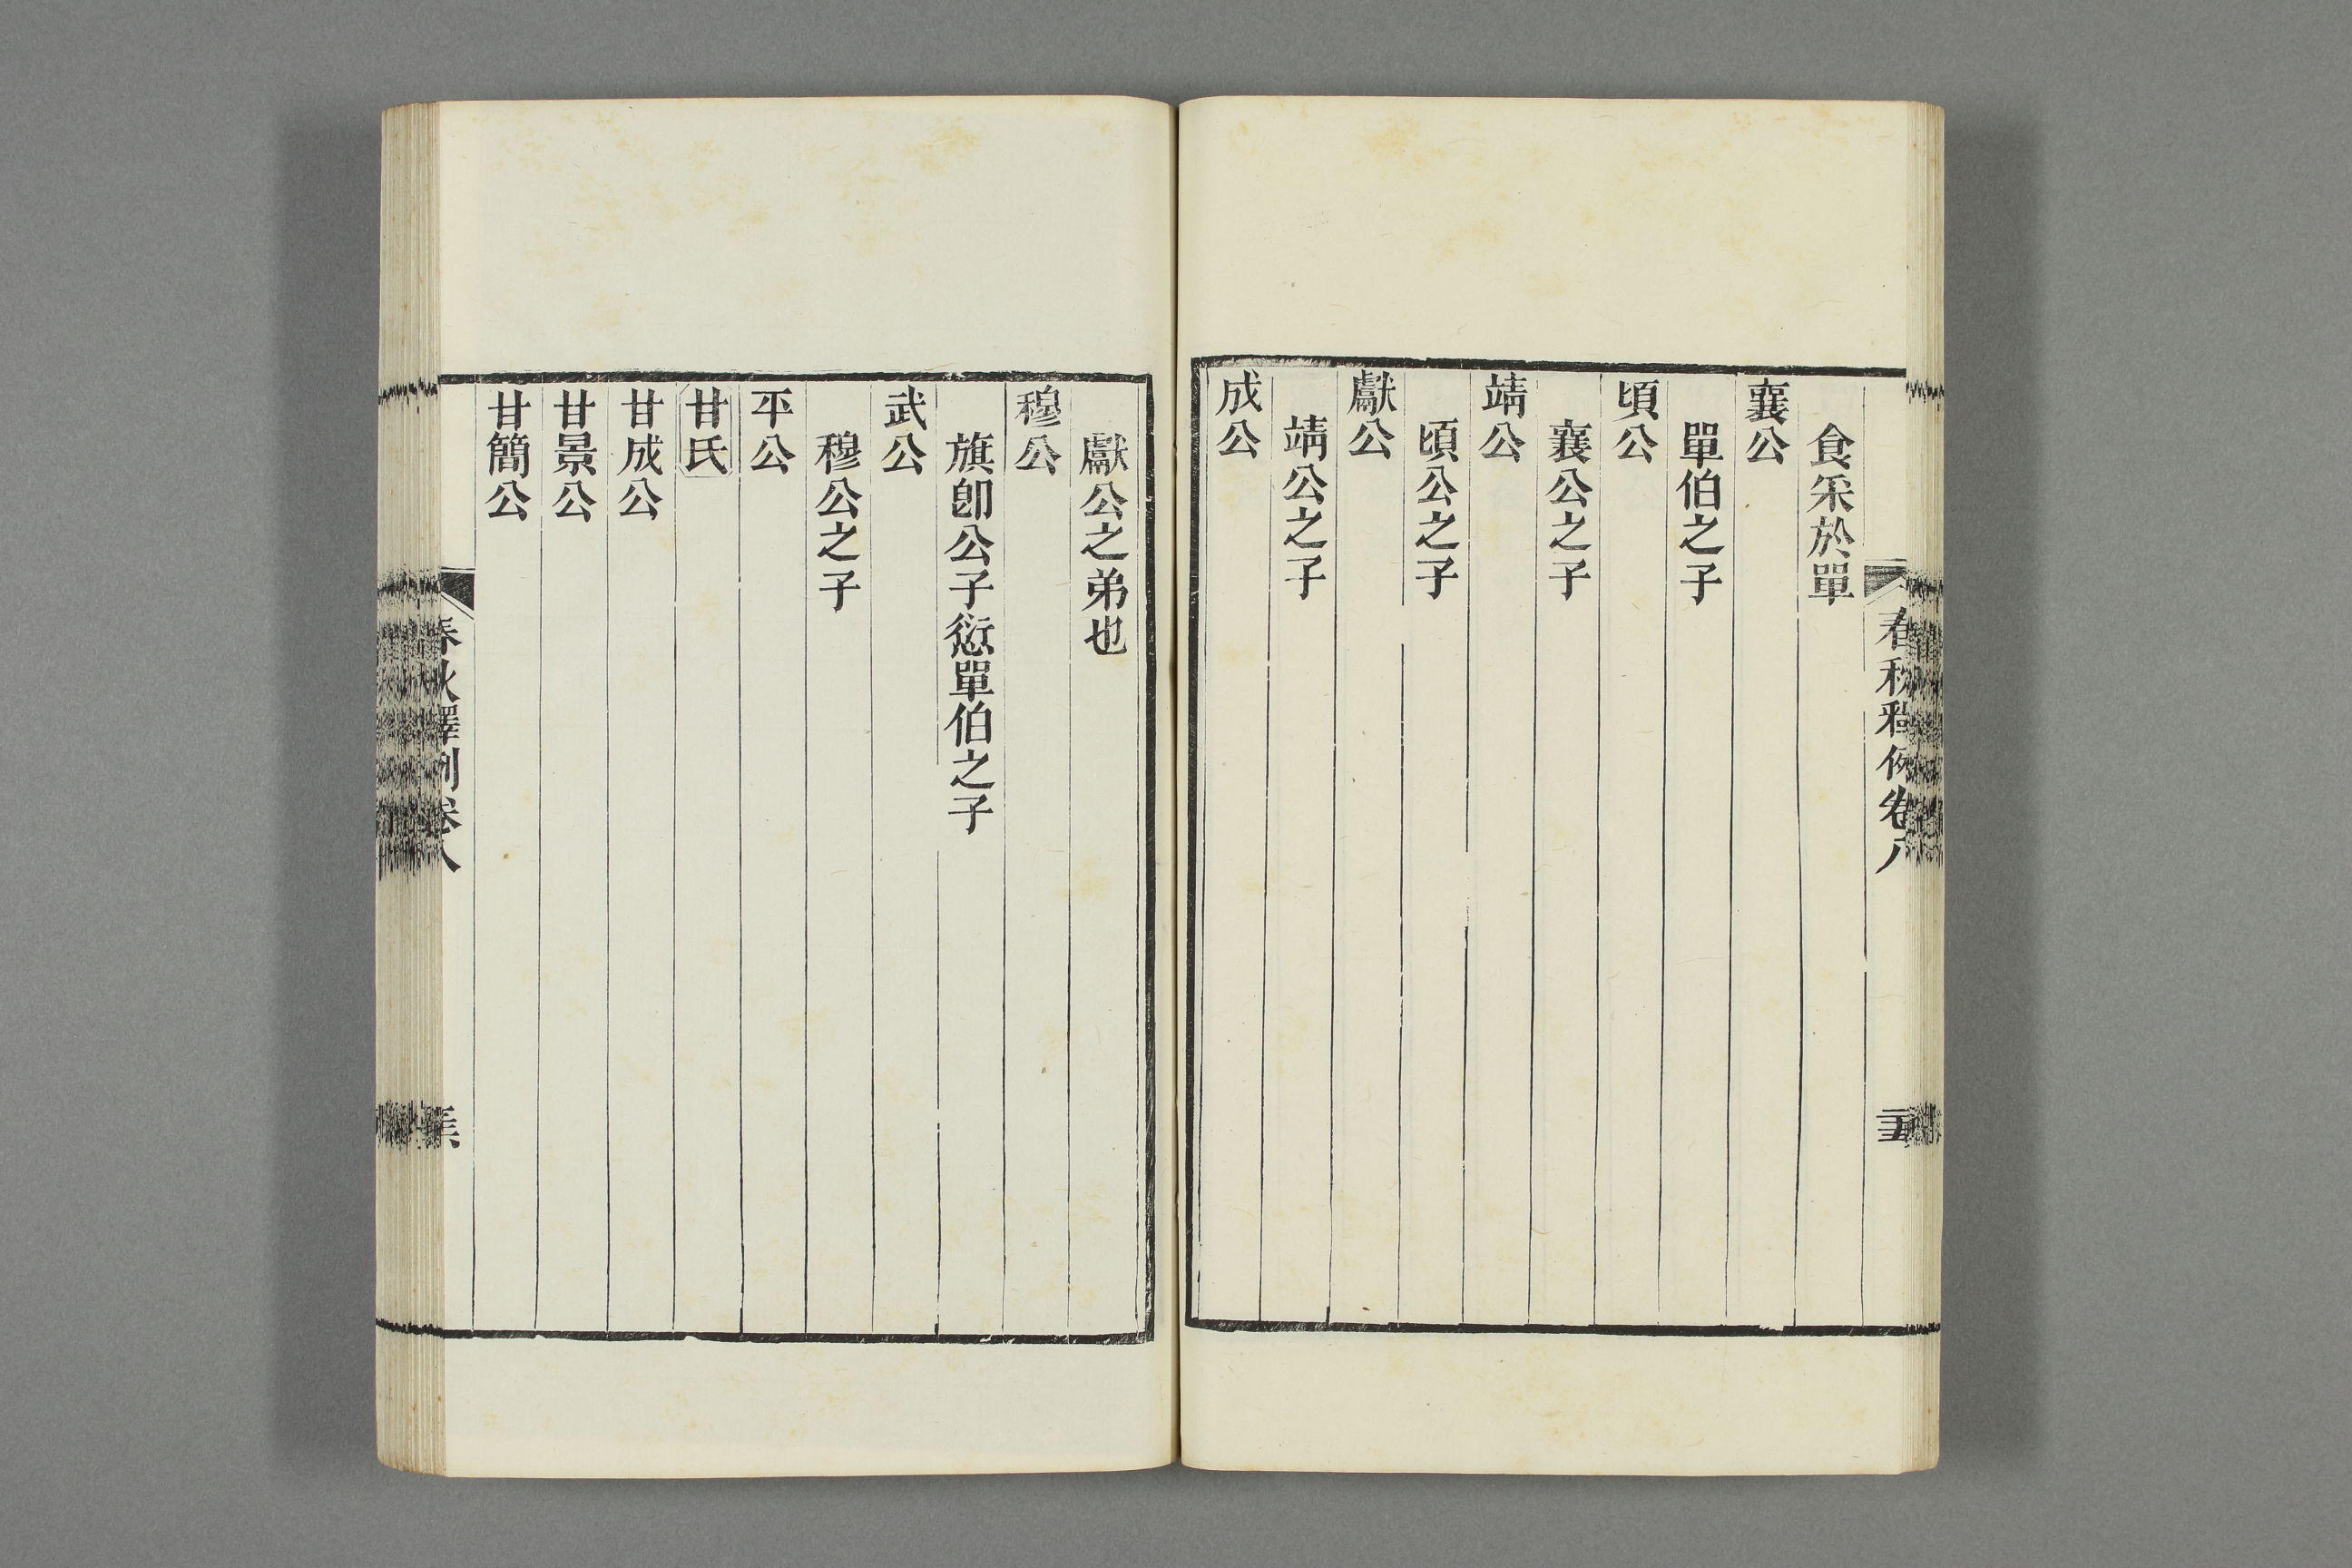 春秋釋例卷八
食采於單
襄公
單伯之子
頃公
襄公之子
靖公
頃公之子
獻公
靖公之子
成公
獻公之弟也
穆公
旗卽公子愆單伯之子
武公
穆公之子
平公
甘氏
甘成公
甘景公
甘簡公
春秋釋例卷八